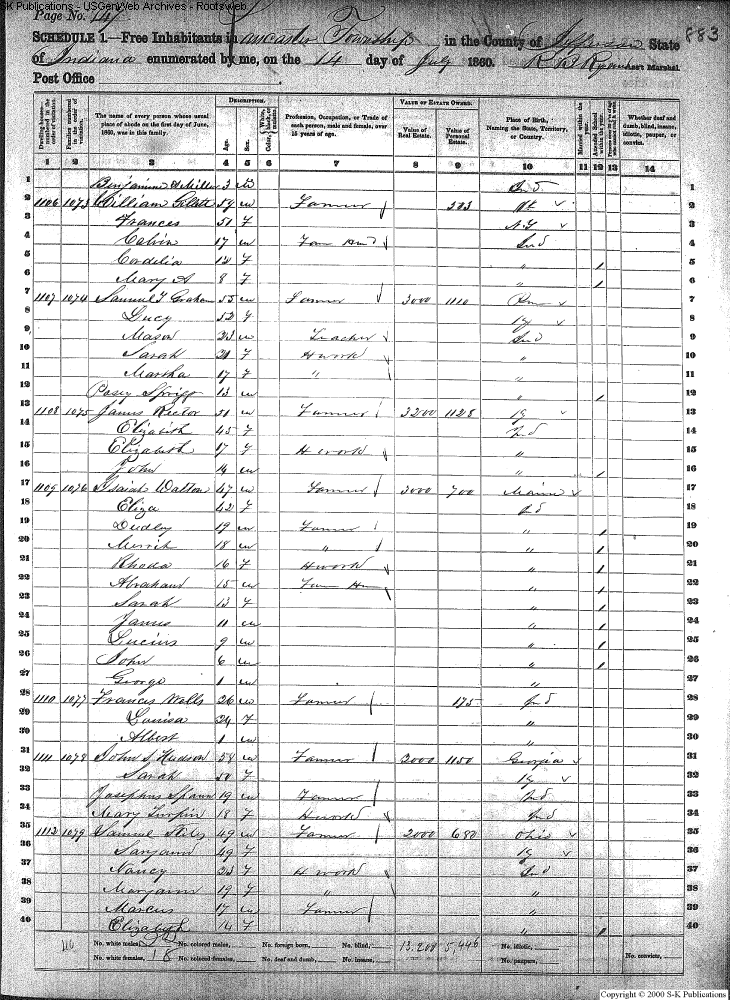 S-K Publications - USGenWeb Archives - Rootsweb
Page No. 141
883
SCHEDULE 1.—Free Inhabitants in Lancaster Township in the County of Jefferson State
of Indiana enumerated by me, on the 14 day of July 1860. Ass't Marshal.
Post Office
Dwelling-houses—numbered in the order of visitation.
Families numbered in the order of visitation.
The name of every person whose usual place of abode on the first day of June, 1860, was in this family.
DESCRIPTION.
Age.
Sex.
Color, White, black, or mulatto.
Profession, Occupation, or Trade of each person, male and female, over 15 years of age.
VALUE OF ESTATE OWNED.
Value of Real Estate.
Value of Personal Estate.
Place of Birth, Naming the State, Territory, or Country.
Married within the year.
Whether deaf and dumb, blind, insane, idiotic, pauper, or convict.
1 2 3 4 5 6 7 8 9 10 11 12 13 14
1 Benjamin Miller 3 m Ind 1
2 1106 1073 William 59 m Farmer 2
3 Frances 51 f N.Y 3
4 Calvin 17 m Ind 4
5 Cordelia 12 f " 1 5
6 Mary A 8 f " 1 6
7 1107 1074 Samuel T Graham 55 m Farmer 3000 1110 7
8 Lucy 52 f Ky 8
9 Mason 23 m Teacher Ind 9
10 Sarah 21 f H work " 10
11 Martha 17 f " " 11
12 Posey Sprigg 13 m " 1 12
13 1108 1075 James Rector 51 m Farmer 3200 1128 Ky 13
14 Elizabeth 45 f Ind 14
15 Elizabeth 17 f H work " 15
16 John 14 m " 1 16
17 1109 1076 Isaiah Walton 47 m Farmer 3000 700 Maine 17
18 Eliza 42 f Ind 18
19 Dudley 19 m Farmer " 1 19
20 Merrit 18 m " " 1 20
21 Rhoda 16 f H work " 1 21
22 Abraham 15 m " 1 22
23 Sarah 13 f " 1 23
24 James 11 m " 1 24
25 Lucius 9 m " 1 25
26 John 6 m " 1 26
27 George 1 m " 27
28 1110 1077 Francis Walls 26 m Farmer 175 Ind 28
29 Louisa 24 f " 29
30 Albert 1 m " 30
31 1111 1078 John S Hudson 58 m Farmer 2000 1150 Georgia 31
32 Sarah 50 f Ky 32
33 Josephus Spann 19 m Farmer Ind 33
34 Mary Turpin 18 f H work Ind 34
35 1112 1079 Samuel Stiles 49 m Farmer 2000 680 Ohio 35
36 Sarjann 49 f Ky 36
37 Nancy 23 f H work Ind 37
38 Maryann 19 f " " 38
39 Marcus 17 m Farmer " 39
40 Elizabeth 14 f " 1 40
No. white males, No. colored males, No. foreign born, No. blind, 13,200 5,446 No. idiotic,
No. white females, 18 No. colored females, No. deaf and dumb, No. insane, No. paupers, No. convicts,
Copyright © 2000 S-K Publications